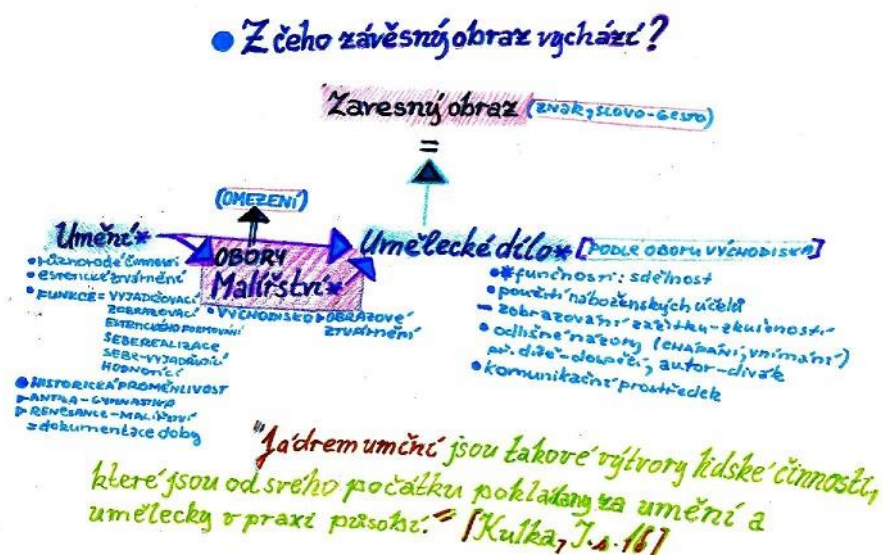 Z čeho závěsný obraz vychází?
Zavesný obraz (ZNAK, SLOVO-GESTO)
=
(OMEZENÍ)
Umění* Umělecké dílo* [PODLE OBORU VÝCHODISKA]
OBORY
Malířství*
• různorodé činnosti
• estetické ztvárnění
• FUNKCE = VYJADŘOVACÍ
ZOBRAZOVACÍ
ESTETICKÉHO FORMOVÁNÍ
SEBEREALIZACE
SEBE-VYJADŘUJÍCÍ
HODNOTÍCÍ
• HISTORICKÁ PROMĚNLIVOST
▸ ANTIKA - GYMNASTIKA
▸ RENESANCE - MALÍŘSTVÍ
= dokumentace doby
• VÝCHODISKO ▸ OBRAZOVÉ
ZTVÁRNĚNÍ
• * funčnosti: sdělnost
• použití náboženských účelů
- zobrazování zážitky-zkušenosti
• odlišné názory (CHÁPÁNÍ, VNÍMÁNÍ)
př. dítě-dospělí, autor-divák
• komunikační prostředek
"Jádrem umění jsou takové výtvory lidské činnosti,
které jsou od svého počátku pokládány za umění a
umělecky v praxi působí." [Kulka, J. s. 16]